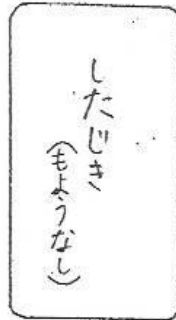 したじき
(もようなし)